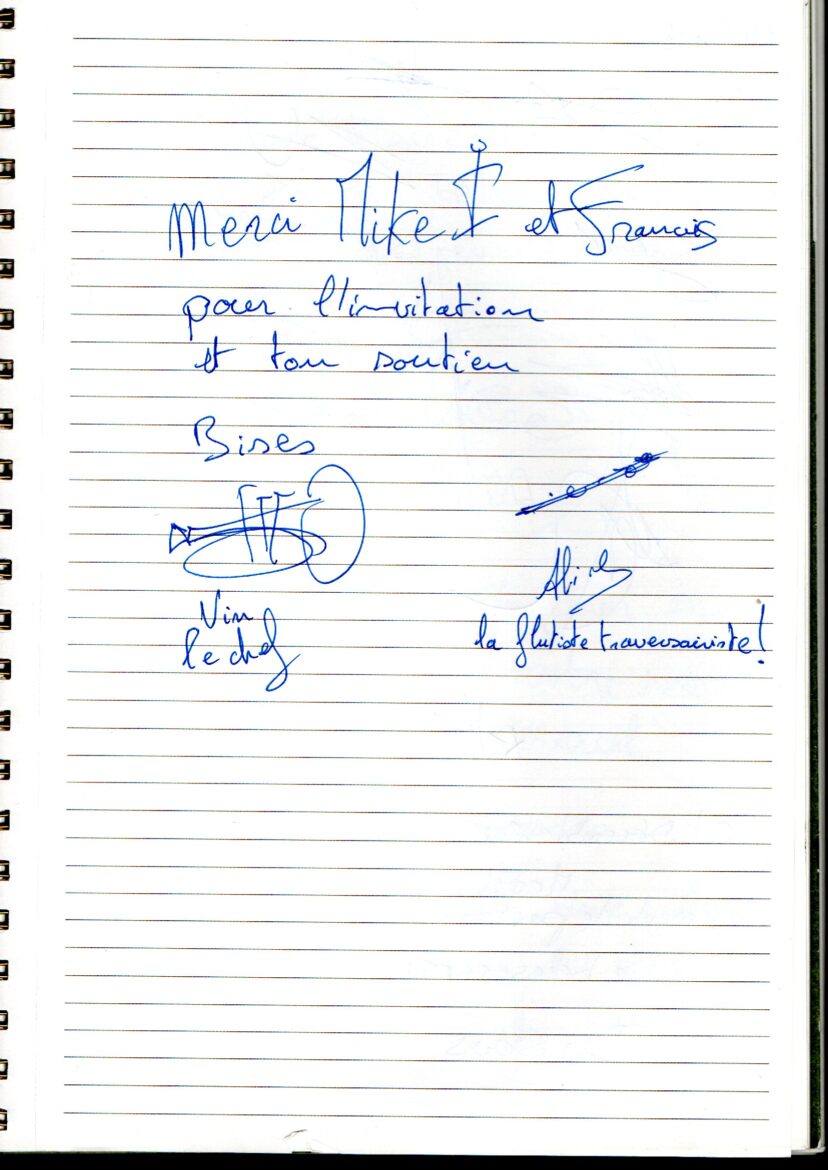 Merci Mike et Francis
pour l'invitation
et ton soutien
Bises
Vin
le chef
la flutiste traversairiste!